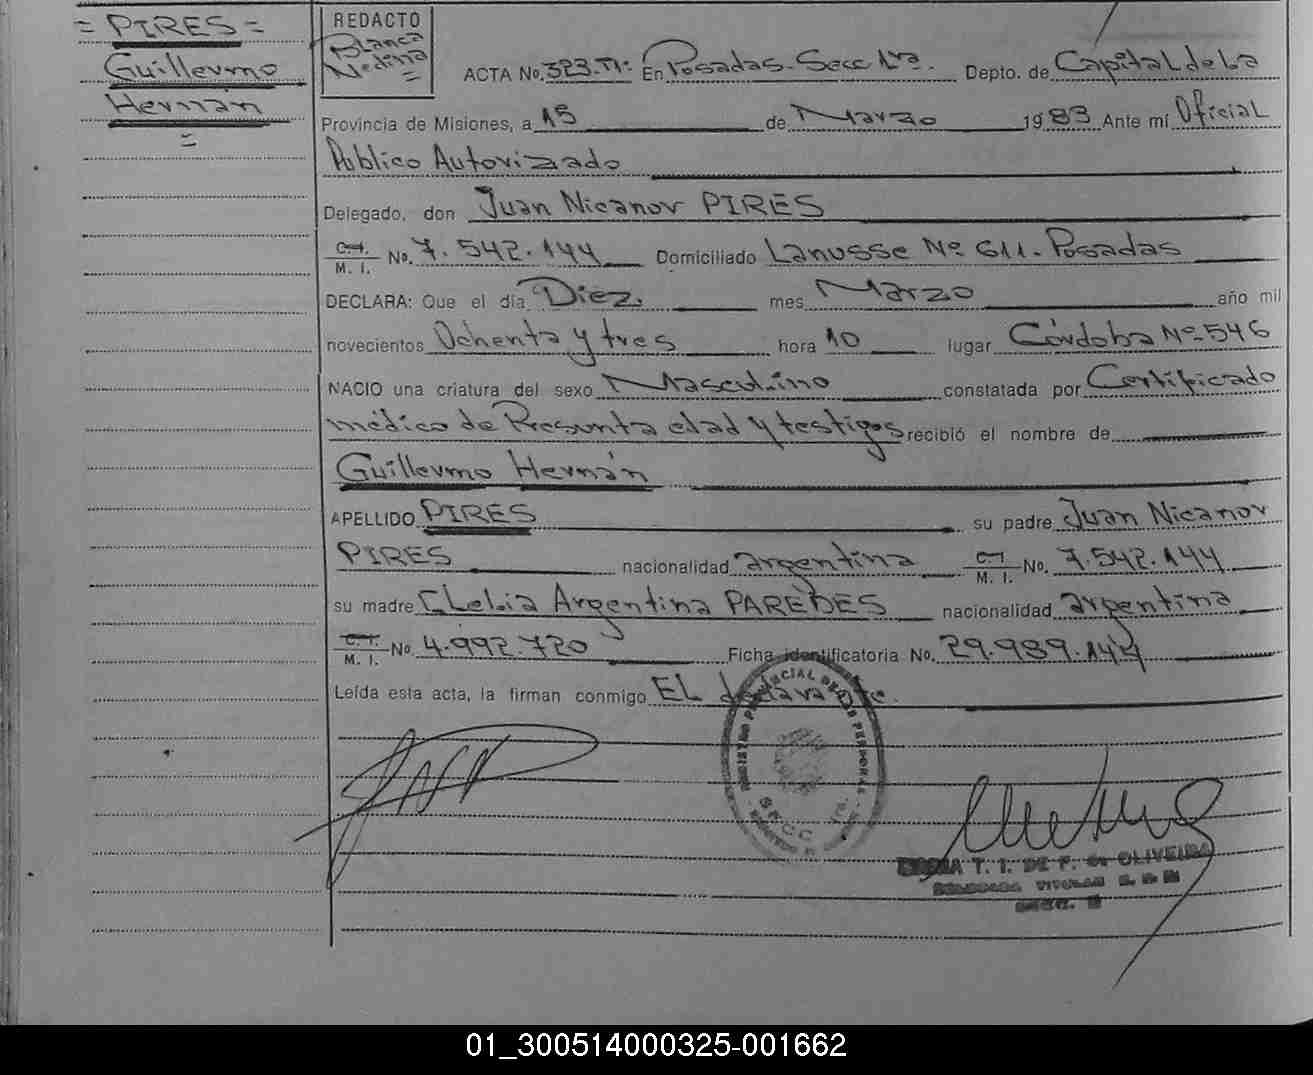 = PIRES =
Guillermo
Hernán
=
REDACTO
Blanca
Medina
=
ACTA No. 323.Tº: En Posadas. Secc 1ra. Depto. de Capital de La
Provincia de Misiones, a 15 de Marzo 1983 Ante mí Oficial
Público Autorizado
Delegado, don Juan Nicanor PIRES
C.I.
M. I. No. 7.542.144 Domiciliado Lanusse Nº 611. Posadas
DECLARA: Que el día Diez mes Marzo año mil
novecientos Ochenta y tres hora 10 lugar Córdoba Nº 546
NACIO una criatura del sexo Masculino constatada por Certificado
médico de Presunta edad y testigos recibió el nombre de
Guillermo Hernán
APELLIDO PIRES su padre Juan Nicanor
PIRES nacionalidad argentina C.I.
M. I. No. 7.542.144
su madre CLelia Argentina PAREDES nacionalidad argentina
C. I.
M. I. No. 4.992.720 Ficha identificatoria No. 29.989.144
Leída esta acta, la firman conmigo EL declarante.
REGISTRO PROVINCIAL DE LAS PERSONAS
SECC 1ra.
T. I. DE F. de OLIVEIRA
TITULAR
SECC.
01_300514000325-001662